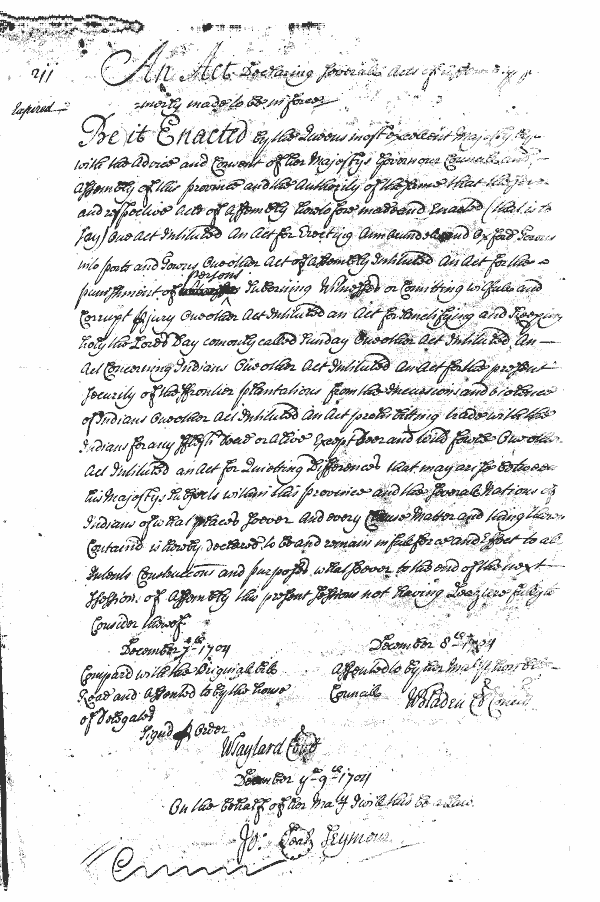 211
An Act Declaring severall Acts of Assembly
Expired
merly made to be in force
Be it Enacted by the Queens most Excellent Majesty by
with the Advice and Consent of her Majestys Governour Councill and
Assembly of this province and the Authority of the same that the
and respective Acts of Assembly heretofore made and Enacted (that is to
say) One Act Intituled An Act for Erecting Ann and Oxford Towns
into ports and Towns One other Act of Assembly Intituled An Act for the
persons
punishment of Suborning Witnesses or Comitting wilfull and
Corrupt perjury One other Act Intituled an Act for Sanctifying and Keeping
holy the Lords Day comonly called Sunday One other Act Intituled An
Act Concerning Indians One other Act Intituled An Act for the present
Security of the ffrontier plantations from the Incursions and violence
of Indians One other Act Intituled An Act prohibitting trade with the
Indians for any fflesh dead or alive Except Deer and wild fowle One other
Act Intituled an Act for Quieting Differences that may arise between
his Majestys Subjects within this province and the severall Nations of
Indians of what place soever And every Clause Matter and thing therein
Contained is hereby declared to be and remain in full force and Effect to all
Intents Constructions and purposes whatsoever to the end of the next
Session of Assembly this present Session not having Leazure fully to
Consider thereof
December 7th 1704
Compard with the Originall bill
Read and Assented to by the house
of Delegates
Signd p Order
W Taylard
December 8th 1704
Assented to by her Majtys honble
Councill
W Bladen Cl Councill
December ye 9th 1704
On the behalf of her Maty I will this be a Law
Jo: Seymour